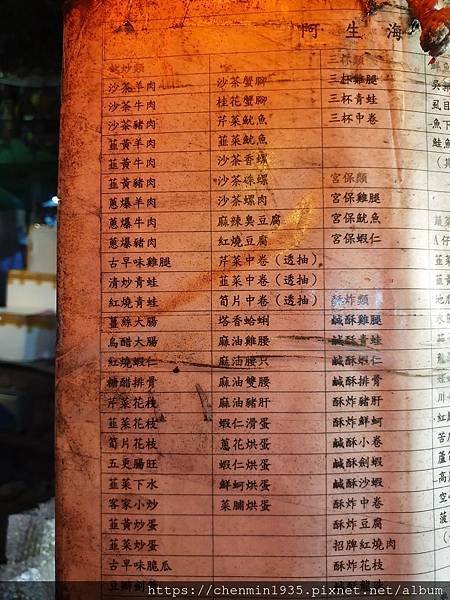 阿生海
鹹炒類
沙茶羊肉
沙茶牛肉
沙茶豬肉
韮黃羊肉
韮黃牛肉
韮黃豬肉
蔥爆羊肉
蔥爆牛肉
蔥爆豬肉
古早味雞腿
清炒青蛙
紅燒青蛙
薑絲大腸
烏醋大腸
紅燒蝦仁
糖醋排骨
芹菜花枝
韮菜花枝
筍片花枝
五更腸旺
韮菜下水
客家小炒
韮黃炒蛋
韮菜炒蛋
古早味脆瓜
沙茶蟹腳
桂花蟹腳
芹菜魷魚
韮菜魷魚
沙茶香螺
沙茶珠螺
沙茶螺肉
麻辣臭豆腐
紅燒豆腐
芹菜中卷(透抽)
韮菜中卷(透抽)
筍片中卷(透抽)
塔香蛤蜊
麻油雞腰
麻油腰只
麻油雙腰
麻油豬肝
蝦仁滑蛋
蔥花烘蛋
蝦仁烘蛋
鮮蚵烘蛋
菜脯烘蛋
三杯類
三杯雞腿
三杯青蛙
三杯中卷
宮保類
宮保雞腿
宮保魷魚
宮保蝦仁
酥炸類
鹹酥雞腿
鹹酥青蛙
鹹酥蝦仁
鹹酥排骨
酥炸豬肝
酥炸鮮蚵
鹹酥小卷
鹹酥劍蝦
鹹酥沙蝦
酥炸中卷
酥炸豆腐
招牌紅燒肉
酥炸花枝
https://chenmin1935.pixnet.net/album